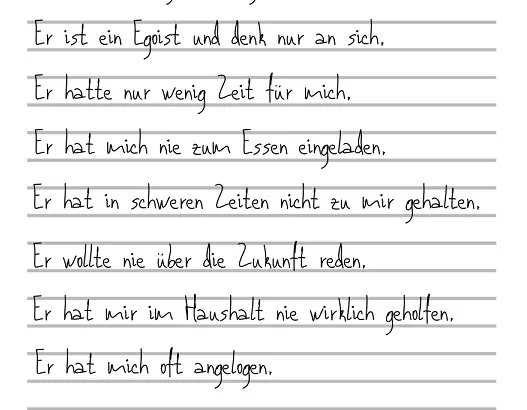 Er ist ein Egoist und denk nur an sich.
Er hatte nur wenig Zeit für mich.
Er hat mich nie zum Essen eingeladen.
Er hat in schweren Zeiten nicht zu mir gehalten.
Er wollte nie über die Zukunft reden.
Er hat mir im Haushalt nie wirklich geholfen.
Er hat mich oft angelogen.